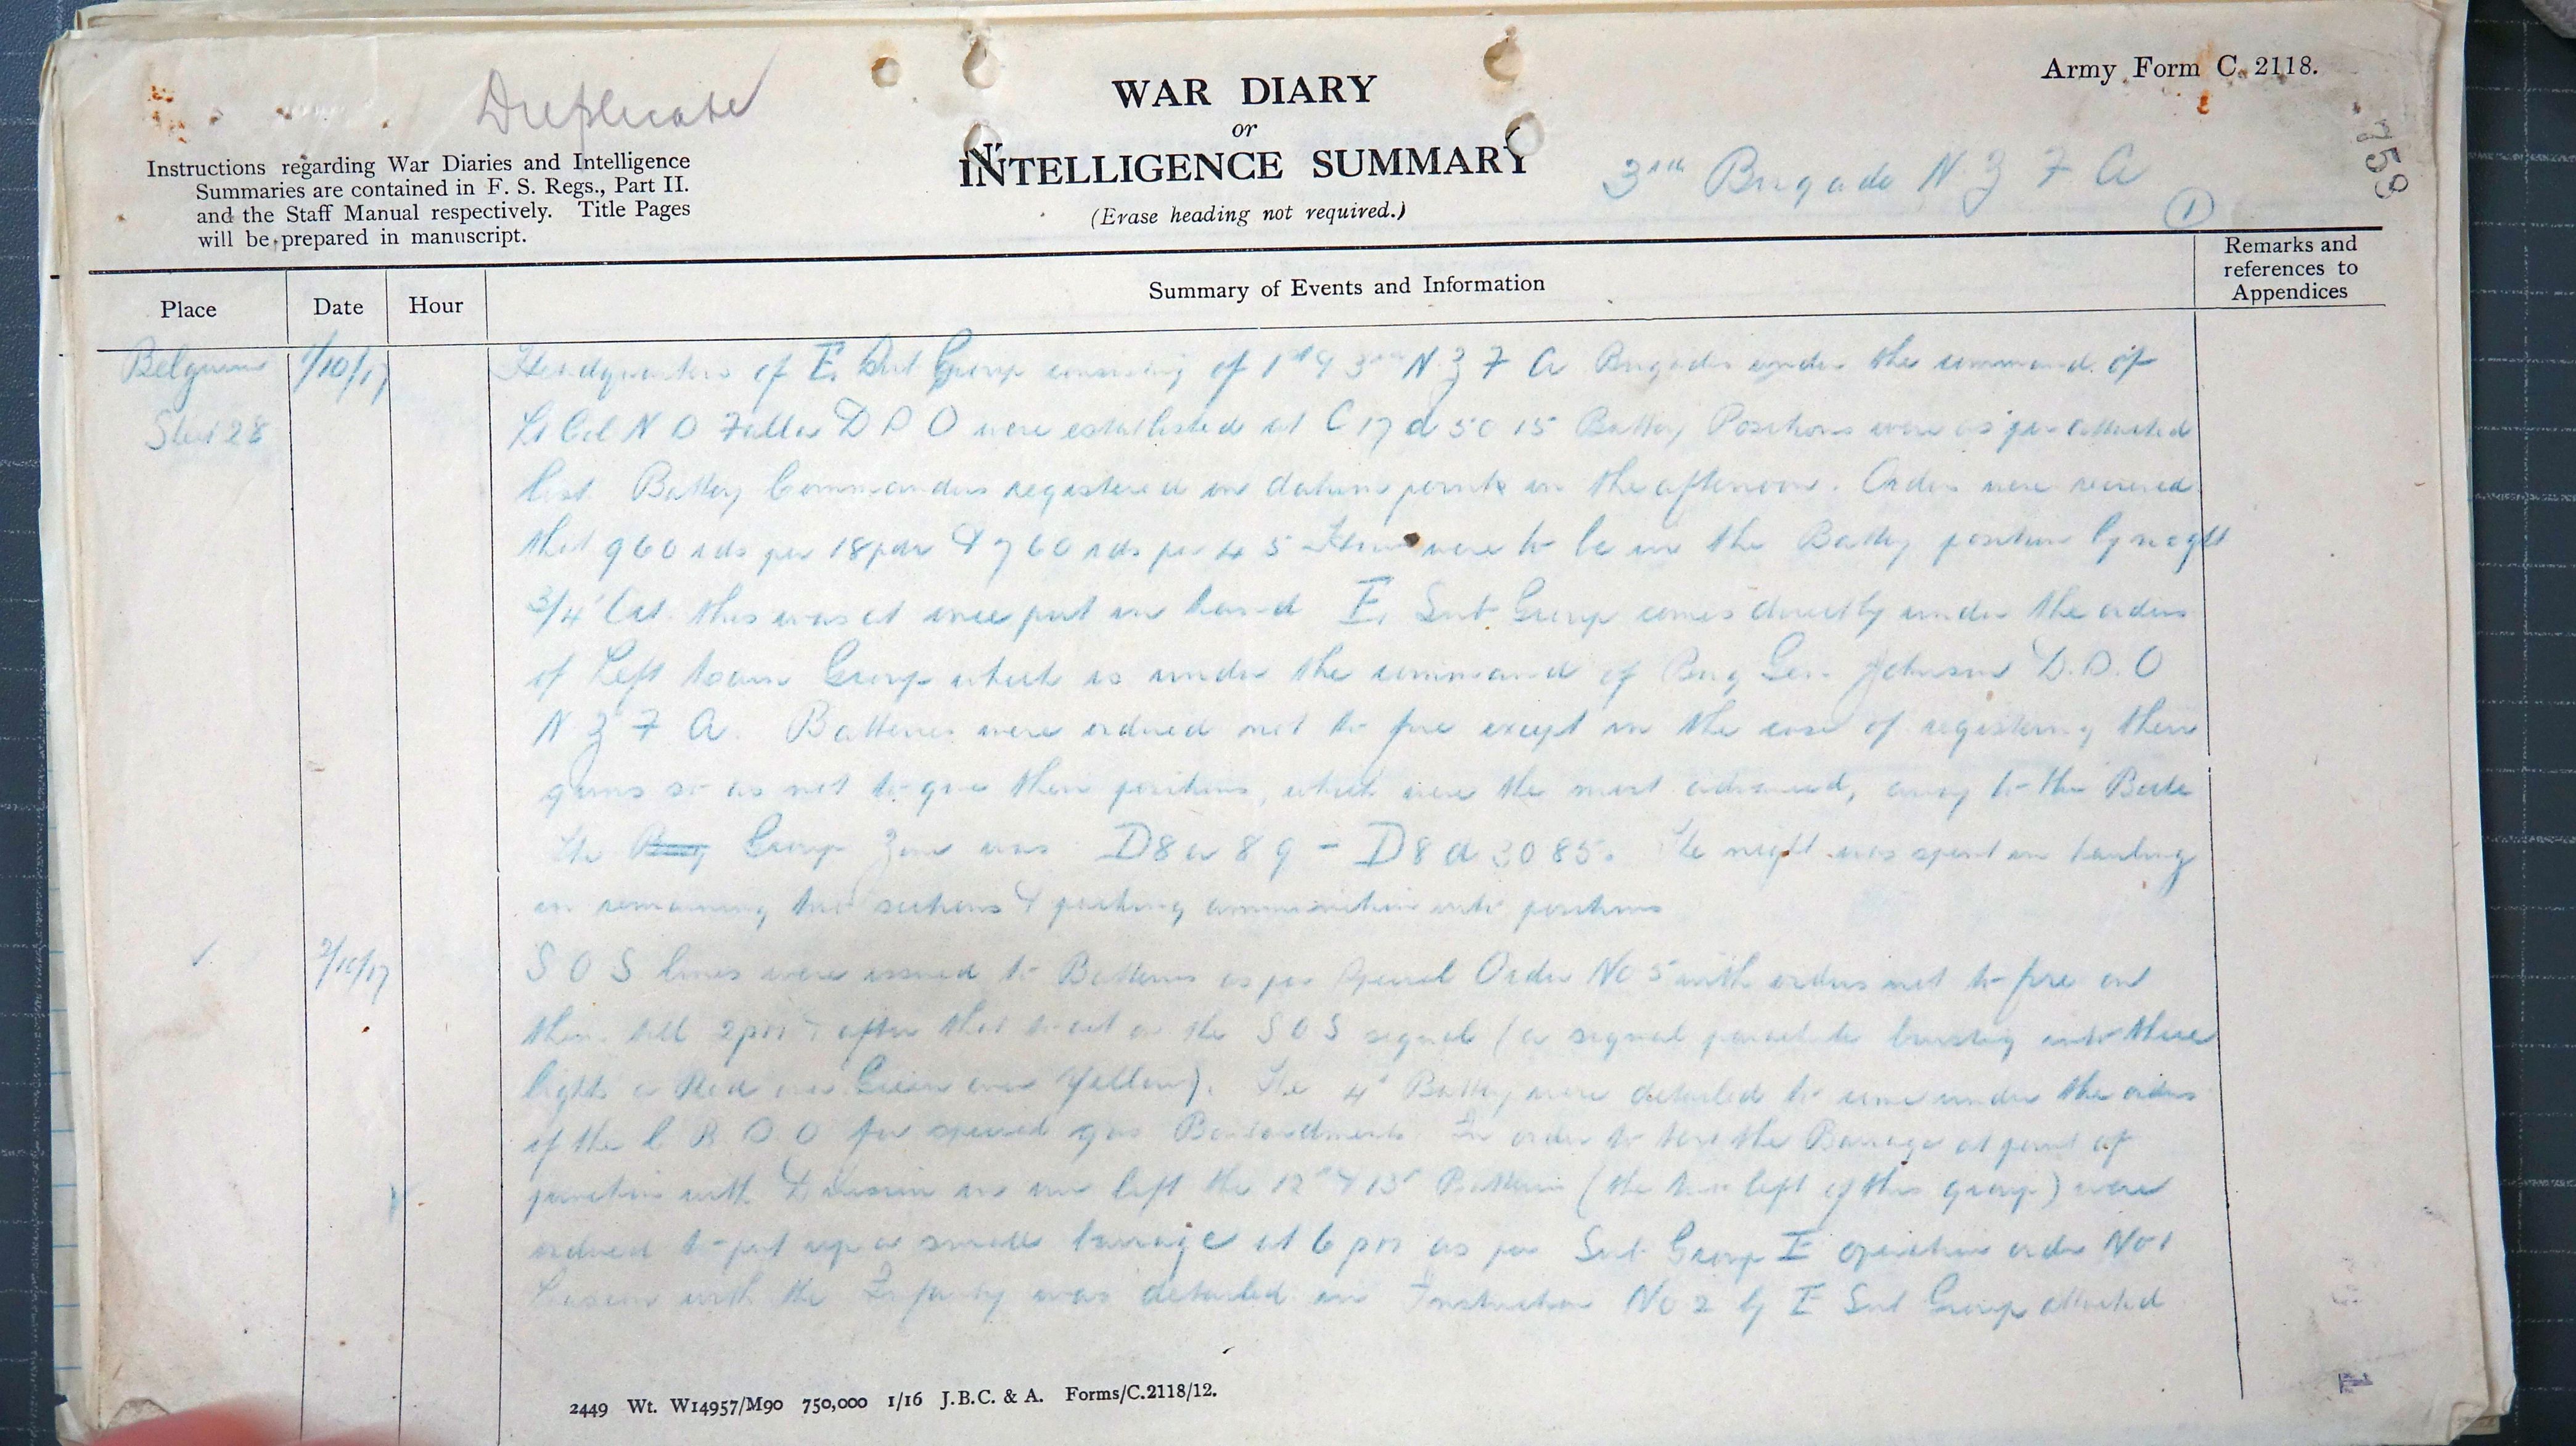 Duplicate
Army Form C. 2118.
WAR DIARY
or
INTELLIGENCE SUMMARY
(Erase heading not required.)
Instructions regarding War Diaries and Intelligence
Summaries are contained in F. S. Regs., Part II.
and the Staff Manual respectively. Title Pages
will be prepared in manuscript.
3rd Brigade N Z F A
1
759
Place
Date
Hour
Summary of Events and Information
Remarks and
references to
Appendices
Belgium
Sheet 28
1/10/17
Headquarters of E. Sub Group consisting of 1st & 3rd N Z F A Brigades under the command of
Lt Col N D Falla D S O were established at C 17 d 50 15 Battery Positions were as per attached
list. Battery Commanders registered on datum points in the afternoon. Orders were received
that 960 rds per 18 pdr & 760 rds per 4 5 How were to be in the Battery position by night
3/4 Oct. this was at once put in hand E. Sub Group comes directly under the orders
of Left Group which is under the command of Brig Gen. Johnson D.S.O
N Z F A. Batteries were ordered not to fire except in the case of registering their
guns so as not to give their positions, which were the most advanced, away to the
The Brig Group Zone was D8 a 8 9 - D8 a 30 85. The night was spent in hauling
in remaining two sections & packing ammunition into positions
2/10/17
S O S lines were issued to Batteries as per Special Order No 5 with orders not to fire on
them till 2pm & after that to act on the S O S signal (a signal parachute bursting into three
lights a Red over Green over Yellow). The 4th Battery were detailed to come under the orders
of the C B S O for special gas Bombardment. In order to test the Barrage at point of
junction with Division on our left the 12th & 13th Batteries (the two left of this group) were
ordered to put up a small barrage at 6 pm as per Sub Group E operation order No 1
Liaison with the Infantry was detailed in Instruction No 2 by E Sub Group attached
2449 Wt. W14957/M90 750,000 1/16 J.B.C. & A. Forms/C.2118/12.